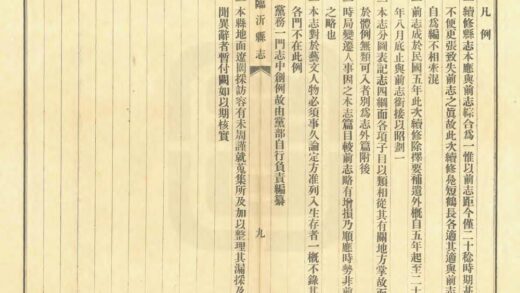 凡例
續修縣志本應與前志綜合為一惟以前志距今僅二十稔時期甚
不便更張致失前志之眞故此次續修鳧短鶴長各適其適與前志
自為編不相牽混
一前志成於民國五年此次續修除擇要補遺外概自五年起至二十
年八月底止與前志銜接以昭劃一
一本志分圖表記志四綱而各項子目以類相從其有關地方掌故而
於體例無類可入者別為志外篇附後
一時局變遷人事因之本志篇目較前志略有增損乃順應時勢非前
之略也
一本志對於藝文人物必須事久論定方准列入生存者一概不錄其
各門不在此例
黨務一門志中創例故由黨部自行負責編纂
臨沂縣志 九
本縣地面遼闊採訪容有未周謹就蒐集所及加以整理其漏採及
聞異辭者暫付闕如以期核實